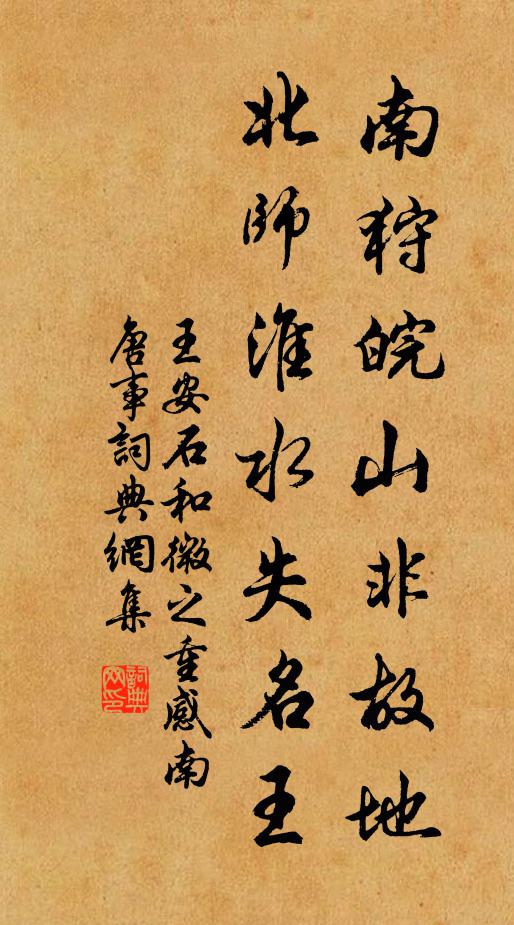 南狩皖山非故地
北師淮水失名王
王安石和微之重感南
唐事詞典網集
詞典網印